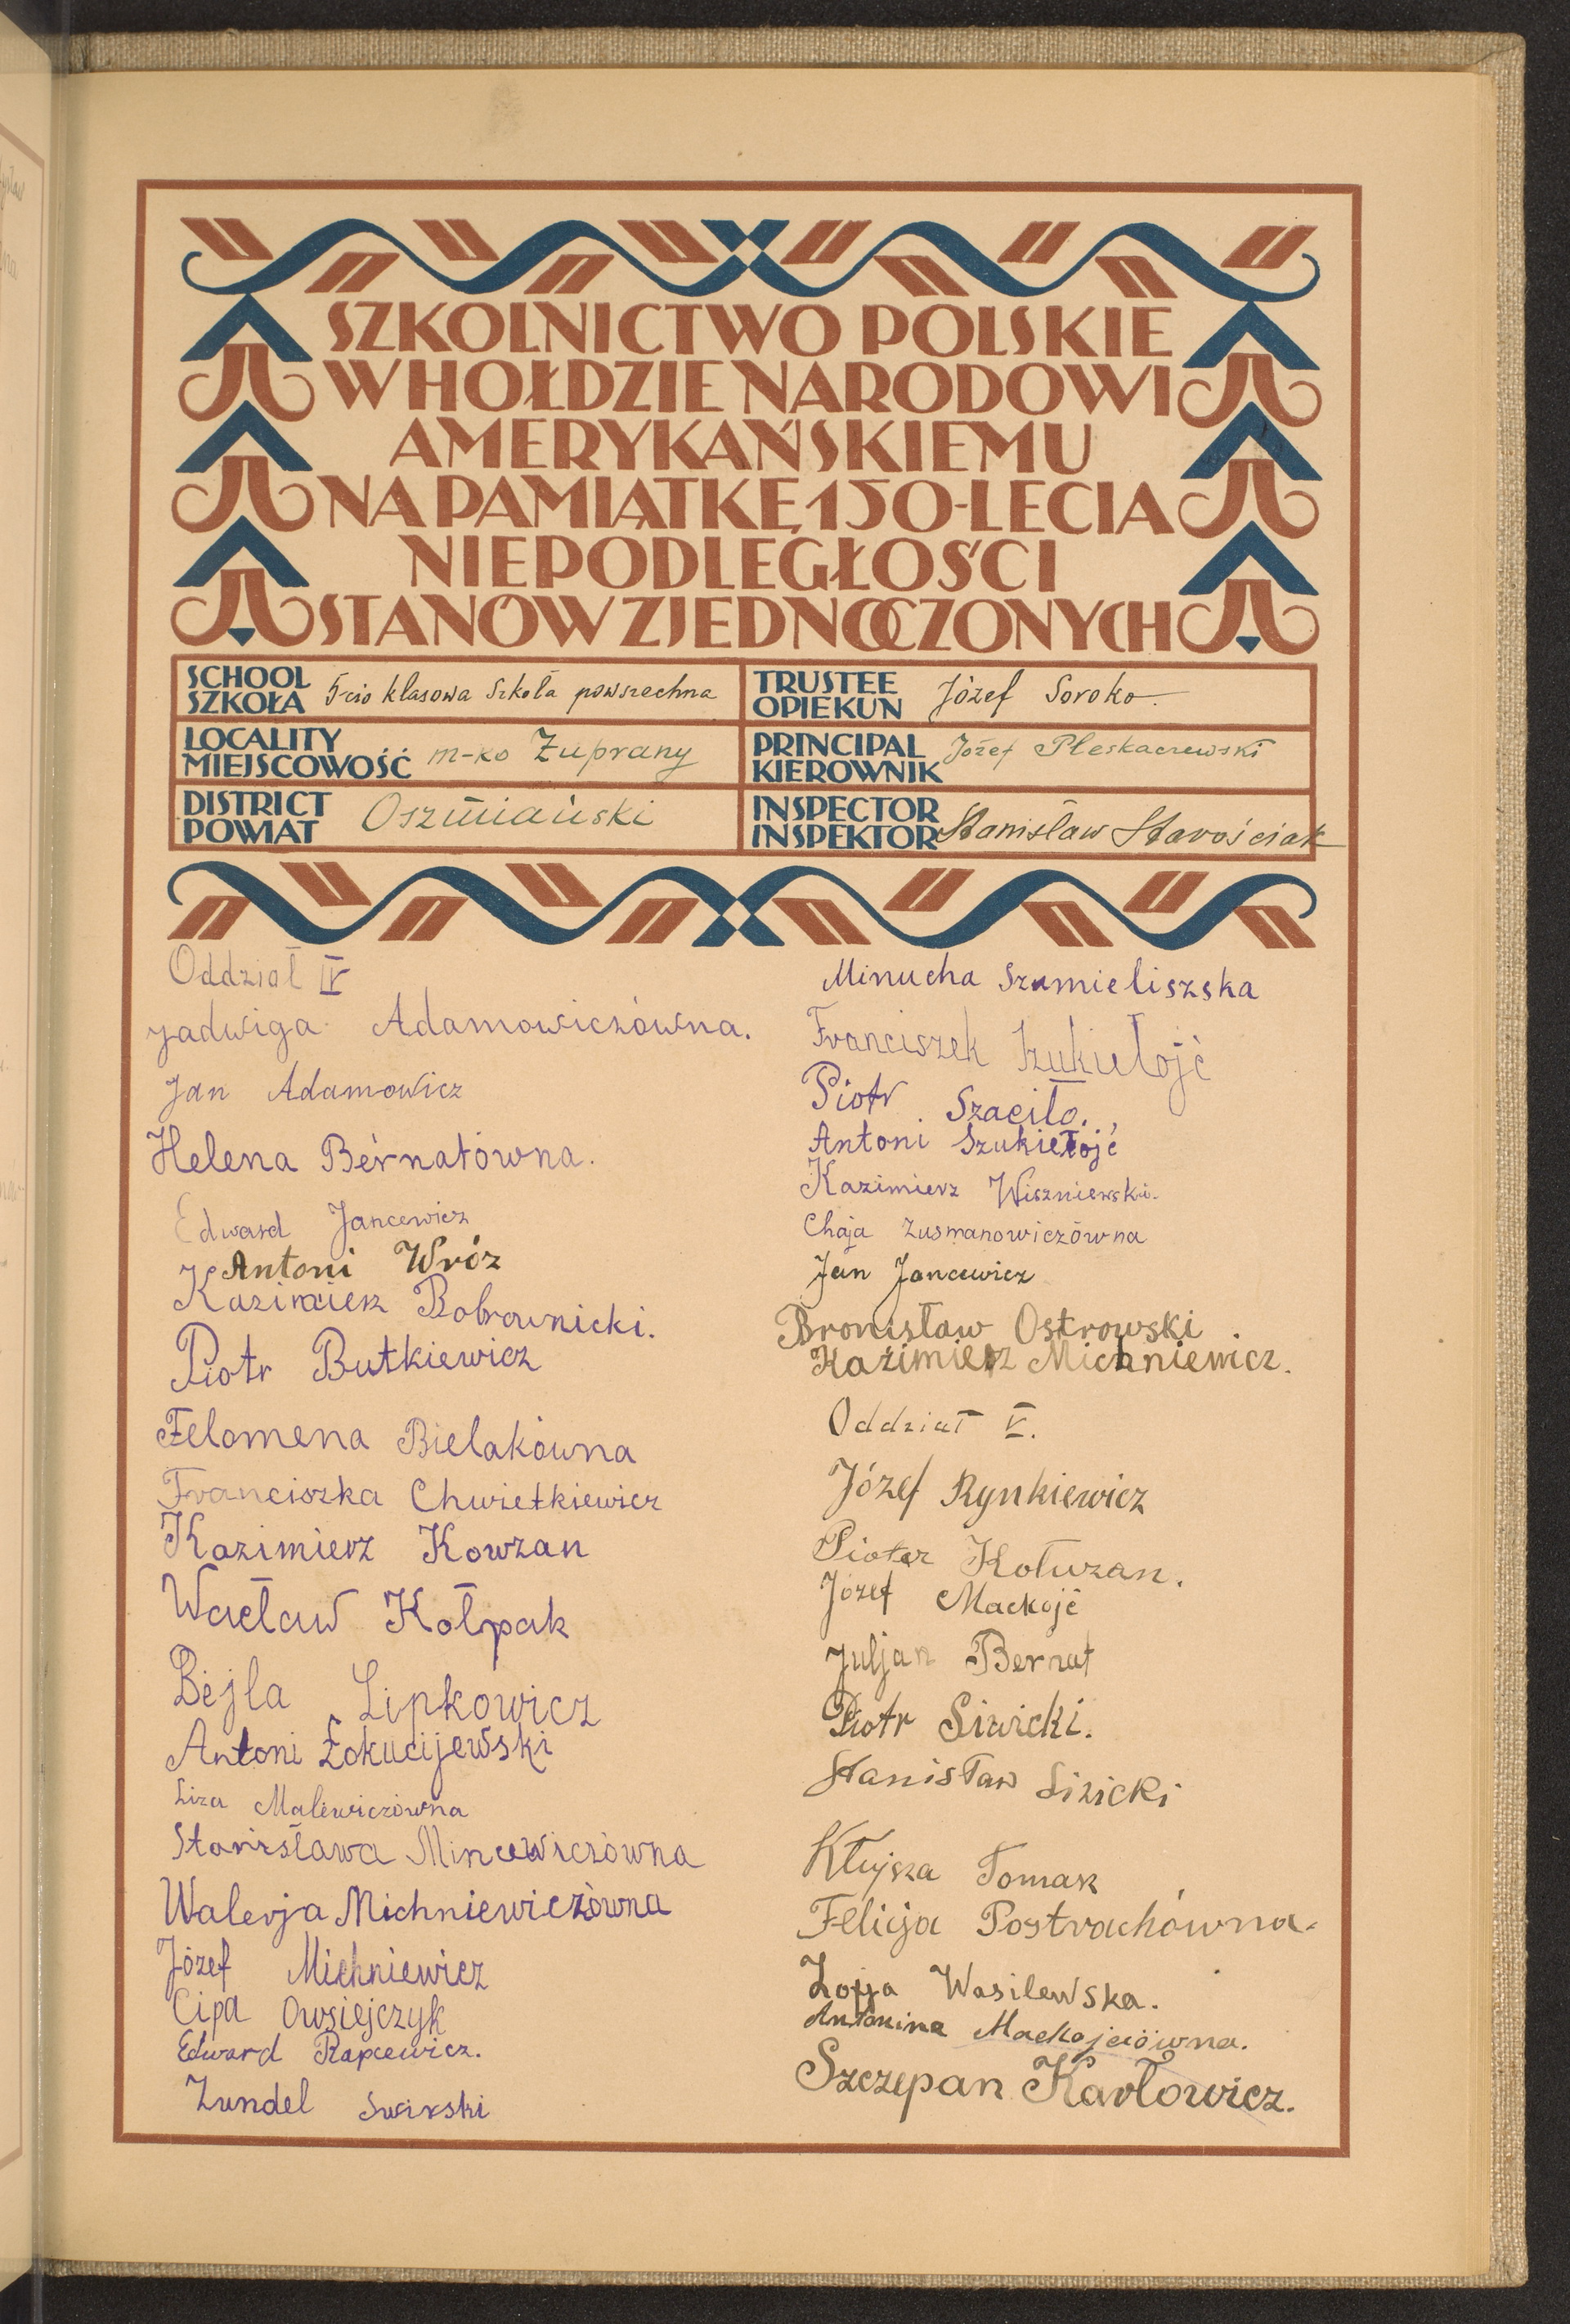 SZKOLNICTWO POLSKIE
W HOŁDZIE NARODOWI
AMERYKAŃSKIEMU
NA PAMIĄTKĘ 150-LECIA
NIEPODLEGŁOŚCI
STANÓW ZJEDNOCZONYCH
SCHOOL
SZKOŁA 5-cio klasowa Szkoła powszechna
TRUSTEE
OPIEKUN Józef Soroko.
LOCALITY
MIEJSCOWOŚĆ m-ko Żuprany
PRINCIPAL
KIEROWNIK Józef Pleskaczewski
DISTRICT
POWIAT Oszmiański
INSPECTOR
INSPEKTOR Stanisław Starościak
Oddział IV
Jadwiga Adamowiczówna.
Jan Adamowicz
Helena Bernatówna.
Edward Jancewicz
Antoni Wróz
Kazimierz Bobrownicki.
Piotr Butkiewicz
Felomena Bielakówna
Franciszka Chwietkiewicz
Kazimierz Kowzan
Wacław Kołpak
Bejla Lipkowicz
Antoni Łokucijewski
Liza Malewiczówna
Stanisława Mincewiczówna
Walerja Michniewiczówna
Józef Michniewicz
Cipa Owsiejczyk
Edward Rapcewicz.
Zundel Swirski
Minucha Szumieliszska
Franciszek Szukiełojć
Piotr Szaciło.
Antoni Szukiełojć
Kazimierz Wiszniewski.
Chaja Zusmanowiczówna
Jan Jancewicz
Bronisław Ostrowski
Kazimierz Michniewicz.
Oddział V.
Józef Rynkiewicz
Piotr Kołwzan.
Józef Mackojć
Juljan Bernat
Piotr Siwicki.
Stanisław Siwicki
Kłujsza Tomasz
Felicja Postrachówna.
Zofja Wasilewska.
Antonina Mackojciówna.
Szczepan Karłowicz.